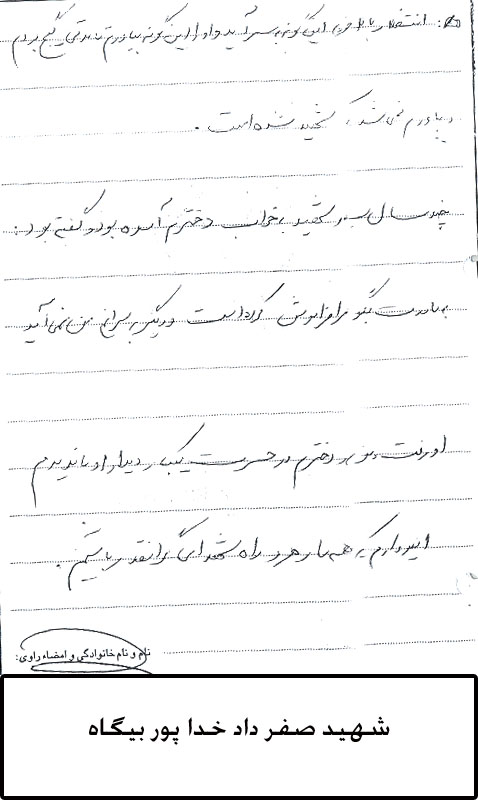 انتظار با اینگونه بسر آمد و او را این گونه بیاورند تا مدتی گیج بودم
و باورم نمی شد که شهید شده است .
چند سال پیش شهید بخواب دخترم آمده بود و گفته بود:
به مادرت بگو مرا فراموش کرده است دیگر به سراغ من نمی آید
او رفت و دخترم در حسرت یکبار دیدار او ماندیم
امیدوارم که همه ما رهرو راه شهدای گرانقدر باشیم .
نام و نام خانوادگی و امضاء راوی:
شهید صفر داد خدا پور بیگاه